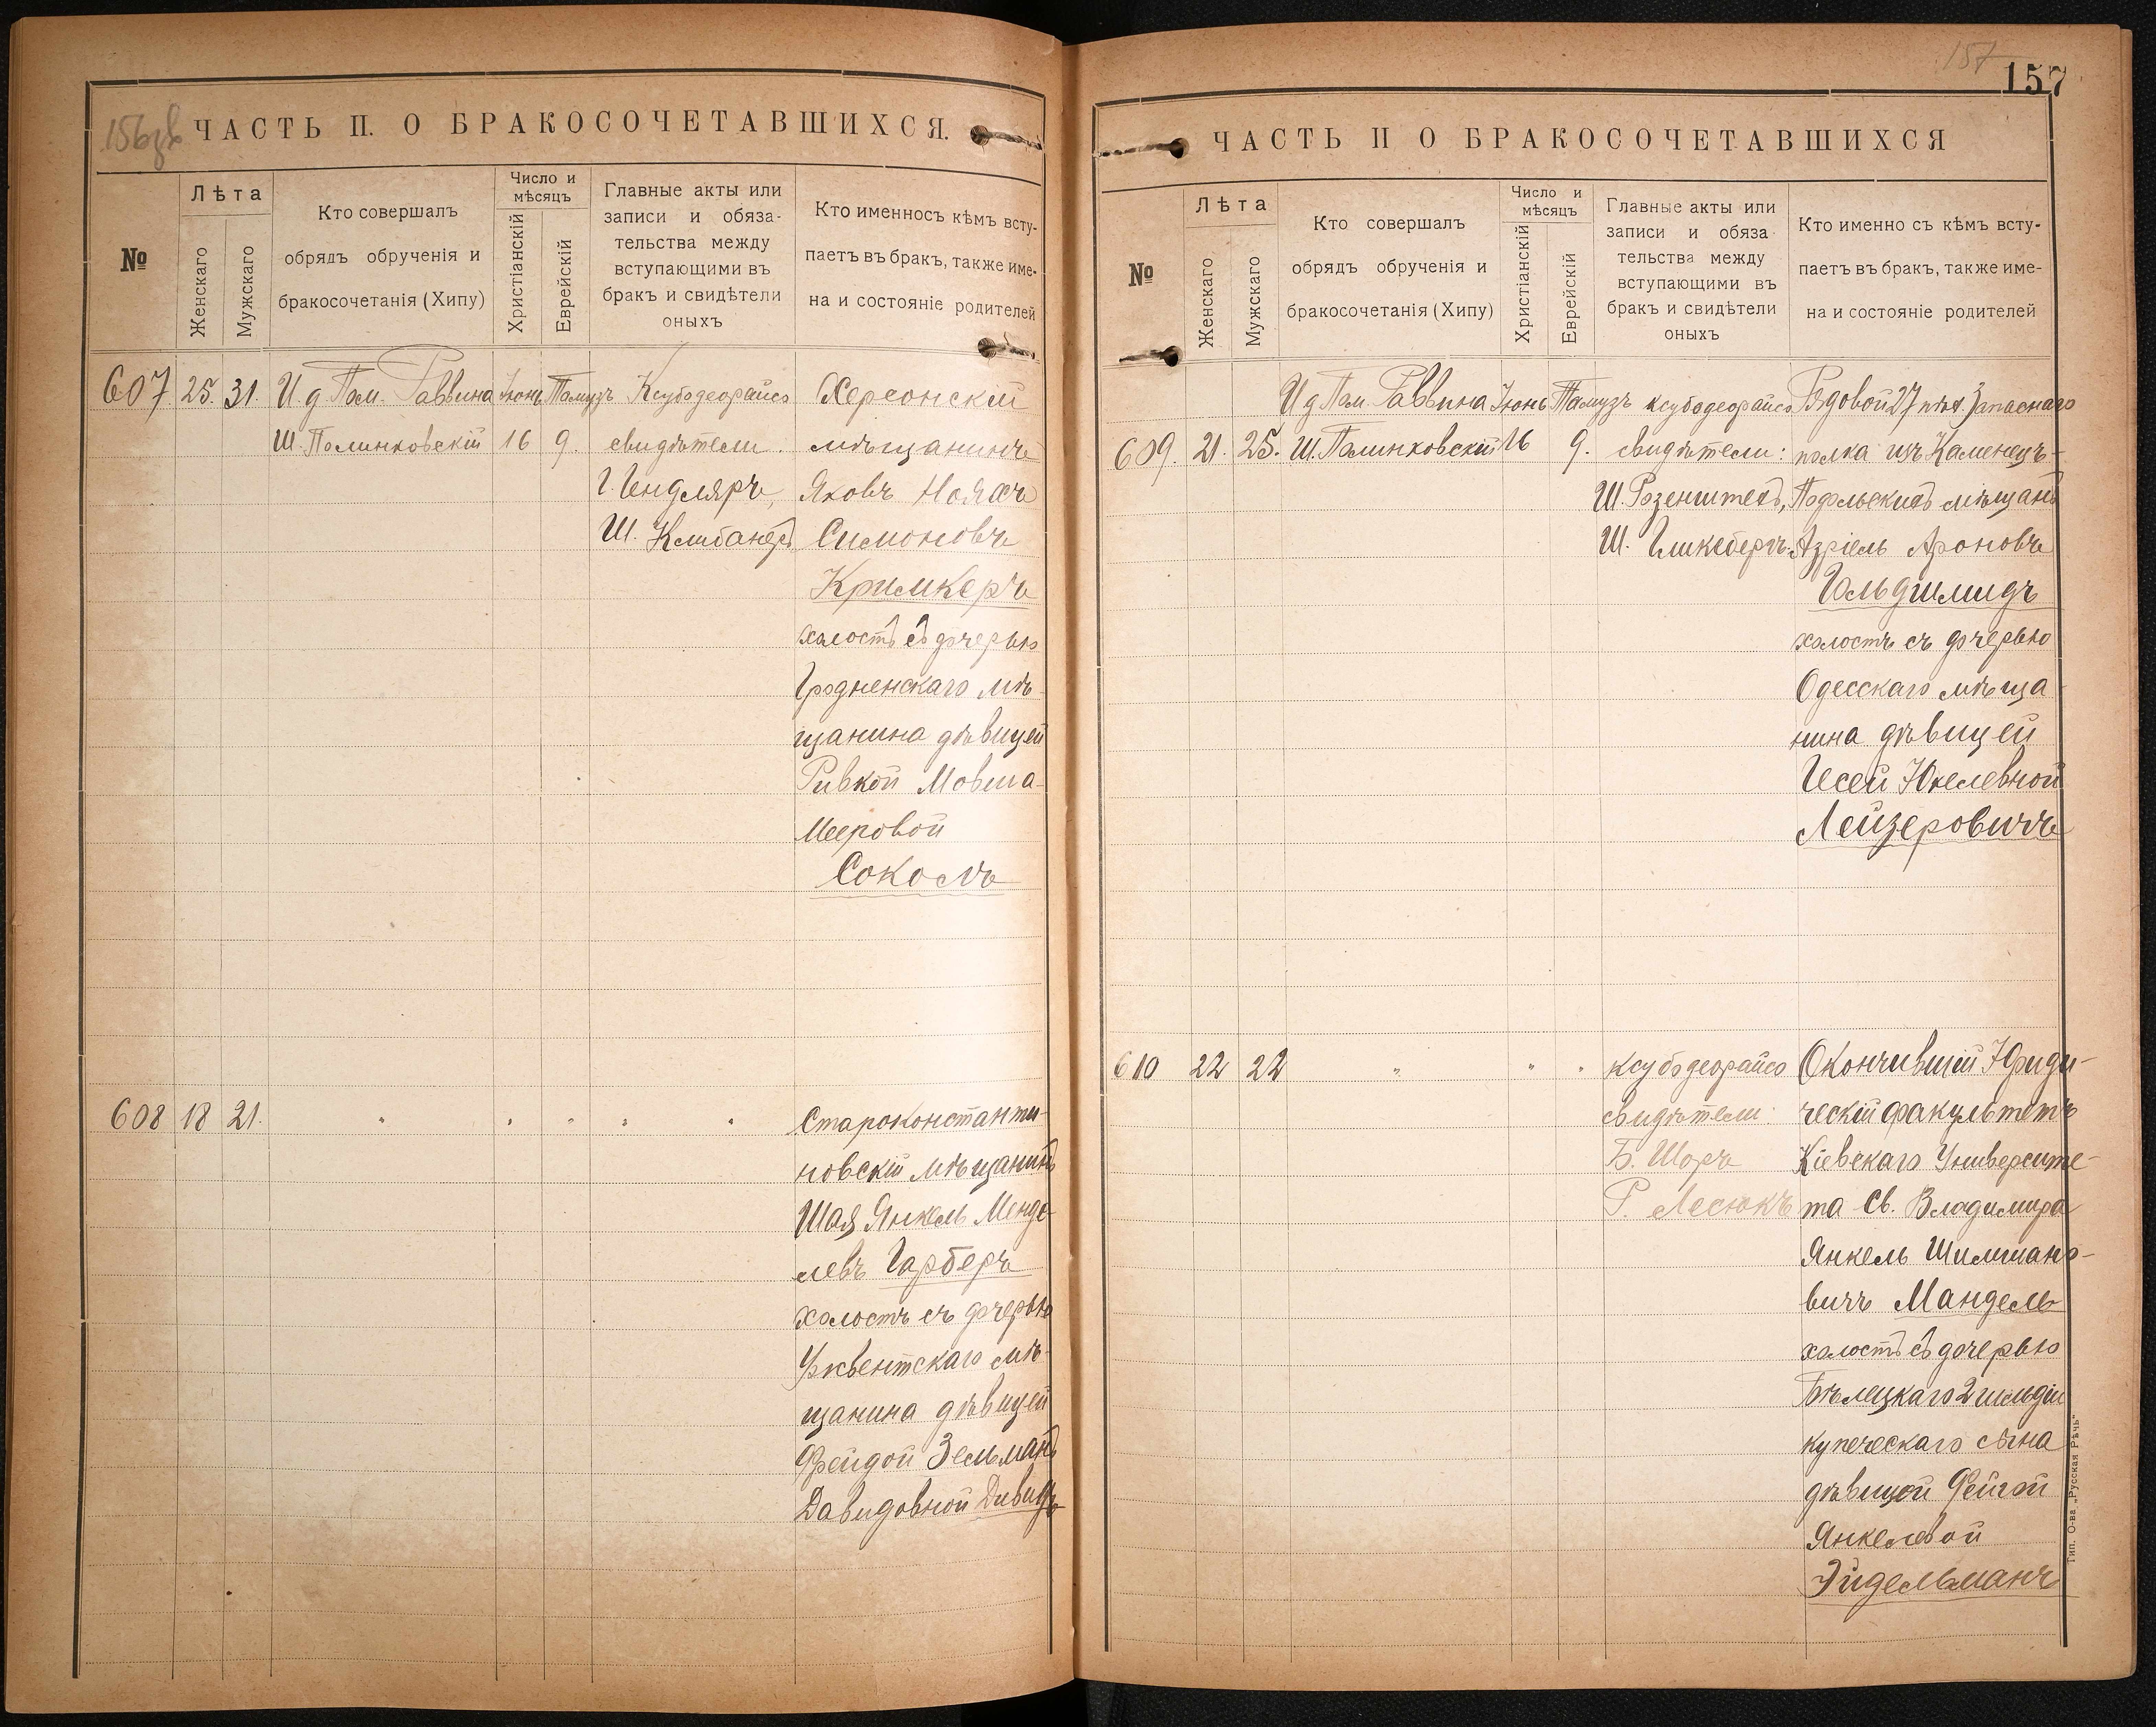 156 зв
ЧАСТЬ II. О БРАКОСОЧЕТАВШИХСЯ.
№
Лѣта
Женскаго
Мужскаго
Кто совершалъ
обрядъ обрученія и
бракосочетанія (Хипу)
Число и
мѣсяцъ
Христіанскій
Еврейскій
Главные акты или
записи и обяза-
тельства между
вступающими въ
бракъ и свидѣтели
оныхъ
Кто именносъ кѣмъ всту-
паетъ въ бракъ, также име-
на и состояніе родителей
607. 25. 31. И д Пом. Раввина Іюнь Тамузъ Ксубодеорайсо Херсонскій
Ш. Полинковскій 16 9. свидѣтели. мѣщанинъ
Г. Гендляръ, Яковъ Ноахъ
Ш. Клибанеръ Симоновъ
Кримкеръ
холостъ съ дочерью
Гродненскаго мѣ-
щанина дѣвицей
Ривкой Мовша-
Мееровой
Соколъ
608 18 21. " " " " " Староконстанти-
новскій мѣщанинъ
Шая Янкель Менде-
левъ Гарберъ
холостъ съ дочерью
мѣ-
щанина дѣвицей
Фрейдой Зельманъ
Давидовной Давидъ
157
157
ЧАСТЬ II О БРАКОСОЧЕТАВШИХСЯ
№
Лѣта
Женскаго
Мужскаго
Кто совершалъ
обрядъ обрученія и
бракосочетанія (Хипу)
Число и
мѣсяцъ
Христіанскій
Еврейскій
Главные акты или
записи и обяза
тельства между
вступающими въ
бракъ и свидѣтели
оныхъ
Кто именно съ кѣмъ всту-
паетъ въ бракъ, также име-
на и состояніе родителей
И д Пом. Раввина Іюнь Тамузъ ксубодеорайсо Рядовой 27 пѣх. Запаснаго
609. 21. 25. Ш. Полинковскій 16 9. свидѣтели: полка изъ Каменецъ-
Ш. Розенштейъ, Подольскихъ мѣщанъ
Ш. Гликбергъ. Азріель Ароновъ
Гольдшмидъ
холостъ съ дочерью
Одесскаго мѣща
нина дѣвицей
Песей Юкелевной
Лейзеровичъ
610 22 22 " " " ксубодеорайсо Окончившій Юриди-
свидѣтели: ческій факультетъ
Б. Шоръ Кіевскаго Университе-
Р. Лесюкъ та Св. Владимира
Янкель Шилиано-
вичъ Мандель
холостъ съ дочерью
Бѣлецкаго 2 гильдіи
купеческаго сына
дѣвицей Фейгой
Янкелевой
Эйдельманъ
Тип. О-ва „Русская Рѣчь"